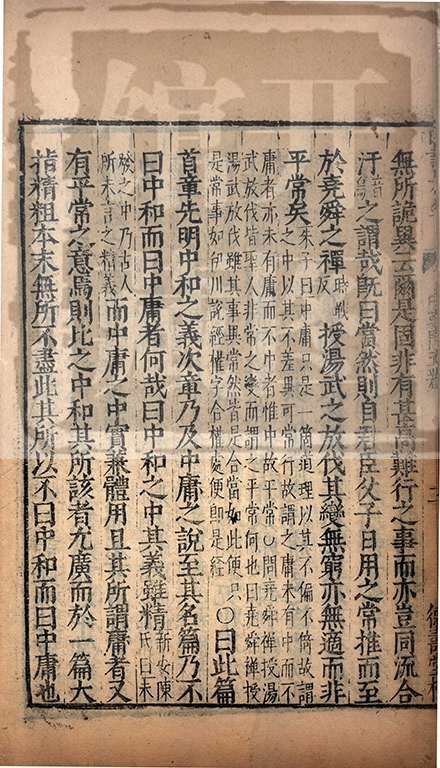 無所詭異云爾是固非有甚高難行之事而亦豈同流合
汙音烏之謂哉既曰當然則自君臣父子日用之常推而至
於堯舜之禪時戰反授湯武之放伐其變無窮亦無適而非
平常矣
朱子曰中庸只是一箇道理以其不偏不倚故謂
之中以其不差異可常行故謂之庸未有中而不
庸者亦未有庸而不中者惟中故平常○問堯舜禪授湯
武放伐皆聖人非常之變而謂之平常何也曰堯舜禪授
湯武放伐雖其事異常然皆是合當如此便只
是常事如伊川說經權字合權處便即是經
○曰此篇
首章先明中和之義次章乃及中庸之說至其名篇乃不
曰中和而曰中庸者何哉曰中和之中其義雖精新安陳氏曰未
發之中乃古人
所未言之精義
而中庸之中實兼體用且其所謂庸者又
有平常之意焉則比之中和其所該者尤廣而於一篇大
指精粗本末無所不盡此其所以不曰中和而曰中庸也